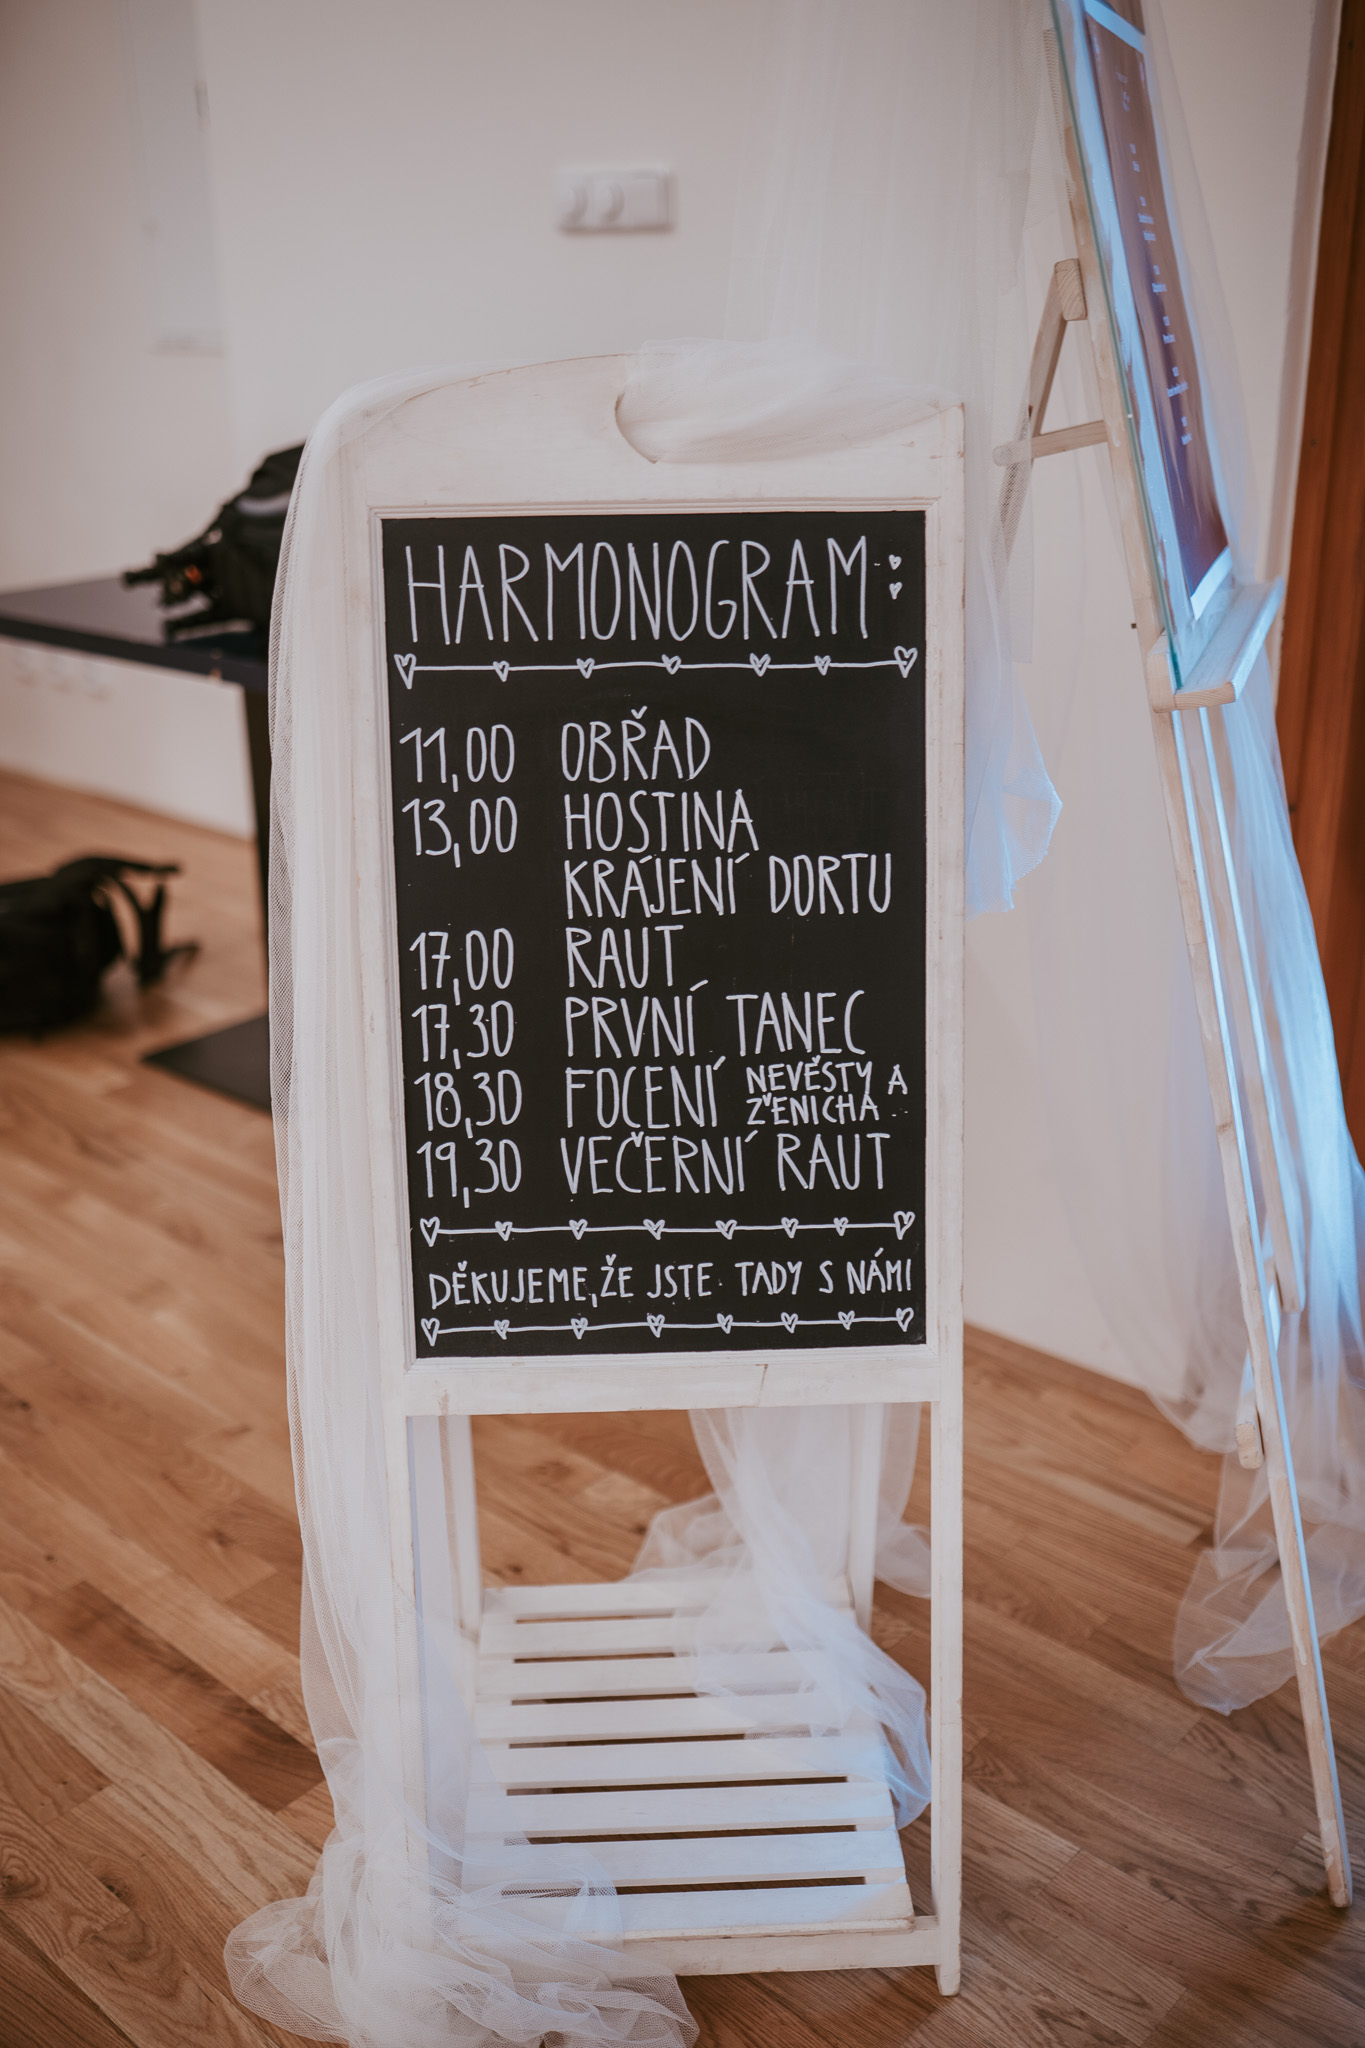 HARMONOGRAM:
11,00 OBŘAD
13,00 HOSTINA
KRÁJENÍ DORTU
17,00 RAUT
17,30 PRVNÍ TANEC
18,30 FOCENÍ NEVĚSTY A
ŽENICHA
19,30 VEČERNÍ RAUT
DĚKUJEME, ŽE JSTE TADY S NÁMI